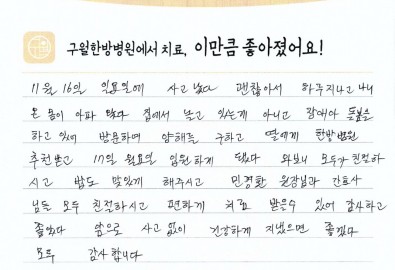 구월한방병원에서 치료, 이만큼 좋아졌어요!
11월 16일 일요일에 사고 났다 괜찮아서 하루지나고 나니
온 몸이 아파 왔다 집에서 놀고 있는게 아니고 장애아 돌봄을
하고 있어 방문하여 양해를 구하고 옆에게 한방병원
추천받고 17일 월요일 입원하게 됐다 와보니 모두가 친절하
시고 밥도 맛있게 해주시고 민경환 원장님과 간호사
님들 모두 친절하시고 편하게 치료 받을수 있어 감사하고
좋았다 앞으로 사고 없이 건강하게 지냈으면 좋겠다
모두 감사합니다